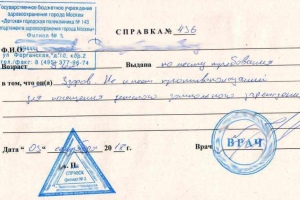 Государственное бюджетное учреждение
здравоохранения города Москвы
«Детская городская поликлиника № 143
Департамента здравоохранения города Москвы»
Филиал № 3
СПРАВКА № 436
Ф.И.О.
ул. Ферганская, д.10, кор.2
тел./факс: 8 (495) 377-96-74
Возраст
Выдана по месту требования
в том, что он(а) Здоров. Не имеет противопоказаний
для посещения
учреждения
Дата «03» 2018 г.
Врач
ВРАЧ
СПРАВОК